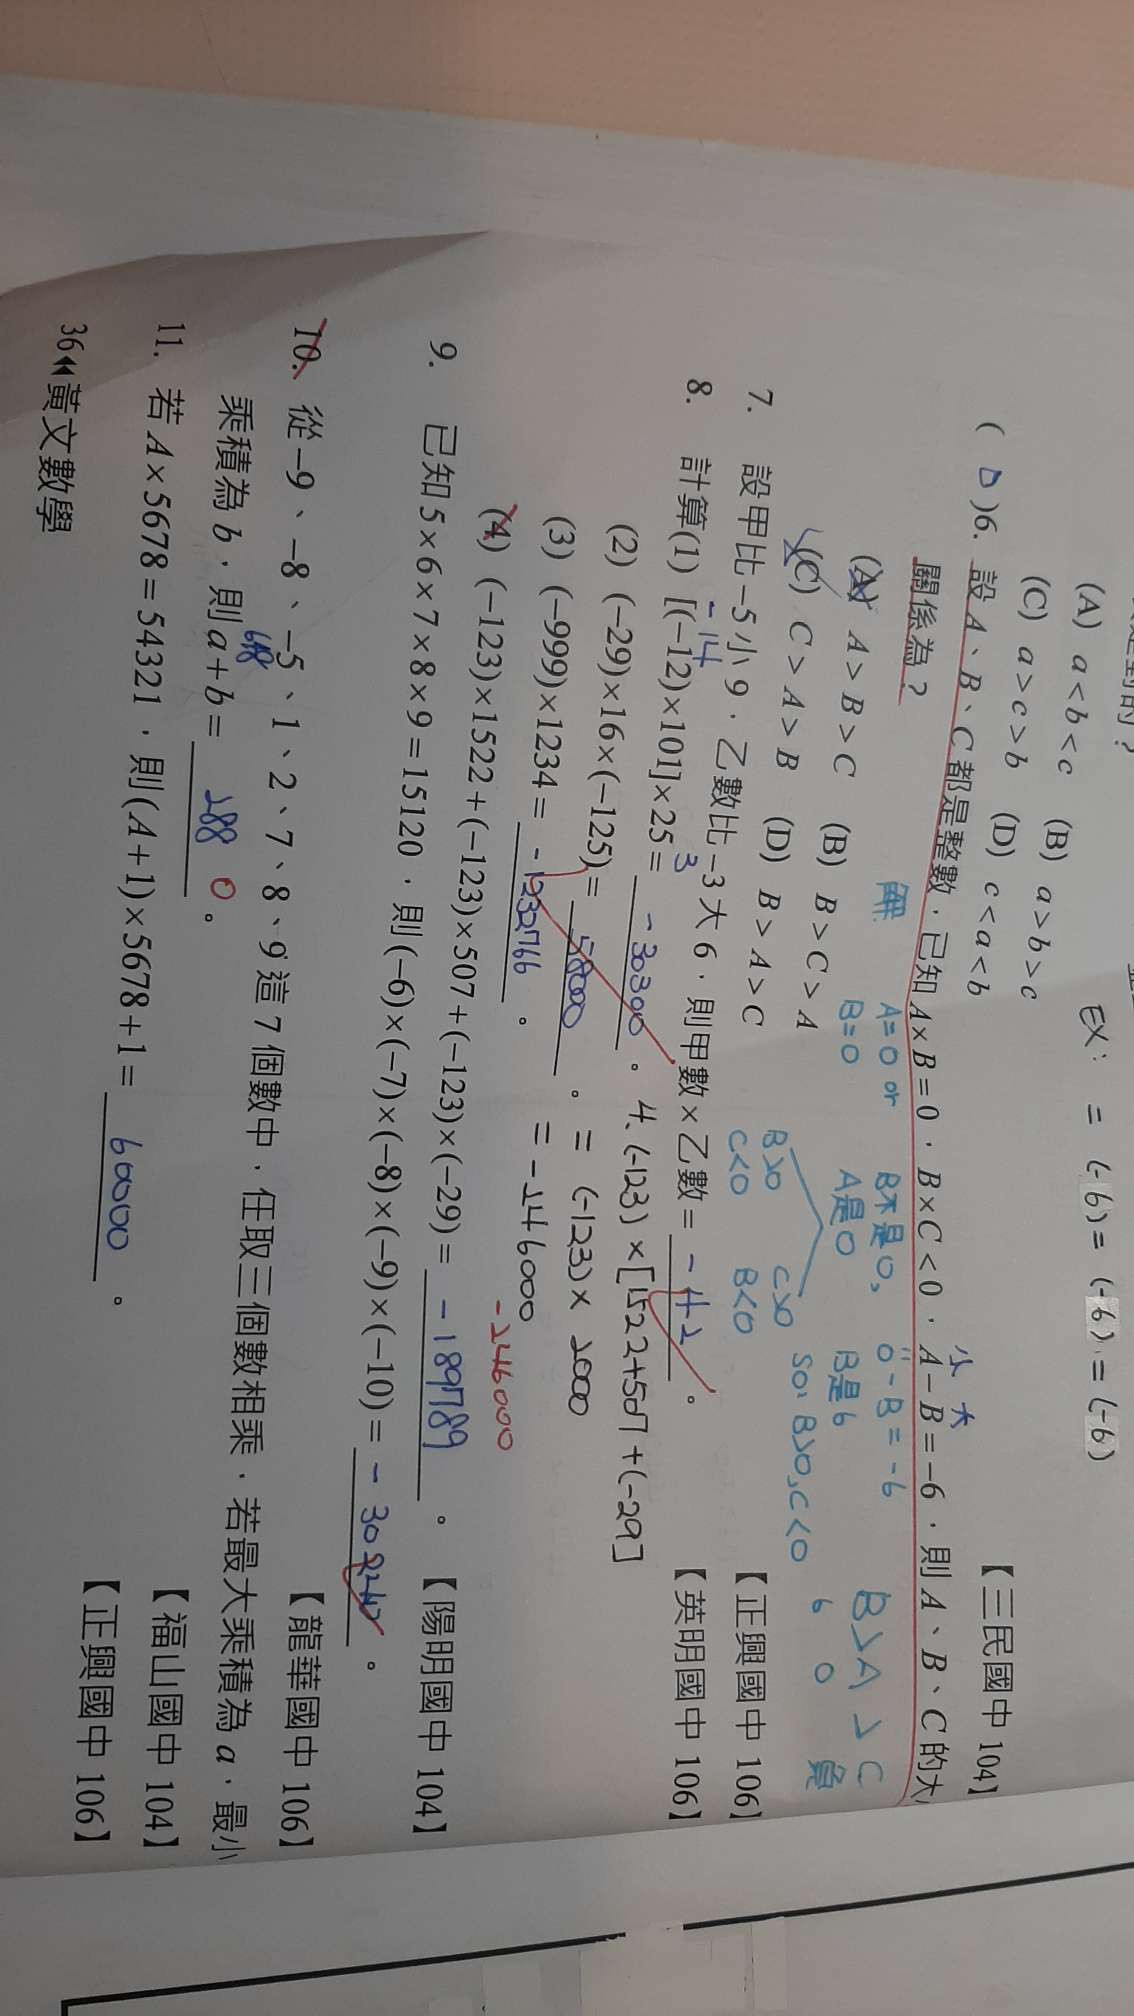 (A) a<b<c (B) a>b>c
(C) a>c>b (D) c<a<b
EX: = (-6)=(-6)=(-6)
【三民國中 104】
( D )6. 設 A、B、C 都是整數，已知 A×B=0，B×C<0，A−B=−6，則 A、B、C 的大
小 大
關係為？
解 A=0 or B=0
B不是0, A是0
0-B=-6
B是6
(A) A>B>C (B) B>C>A
(C) C>A>B (D) B>A>C
B>0 C<0
C>0 B<0
so: B>0, C<0
B>A>C
6 0 負
7. 設甲比−5小9，乙數比−3大6，則甲數×乙數= -42 。 【正興國中 106】
-14 3
8. 計算(1) [(−12)×101]×25= -30300 。 【英明國中 106】
(2) (−29)×16×(−125)= 58000 。
(3) (−999)×1234= -1232766 。
(4) (−123)×1522+(−123)×507+(−123)×(−29)= -189789 。 【陽明國中 104】
-246000
4. (-123)×[1522+507+(-29]
= (-123)× 2000
= -246000
9. 已知 5×6×7×8×9=15120，則(−6)×(−7)×(−8)×(−9)×(−10)= -30240 。
【龍華國中 106】
10. 從−9、−8、−5、1、2、7、8、9 這 7 個數中，任取三個數相乘，若最大乘積為 a，最小
乘積為 b，則 a+b= 288 0 。 【福山國中 104】
648
11. 若 A×5678=54321，則(A+1)×5678+1= 60000 。 【正興國中 106】
36 黃文數學